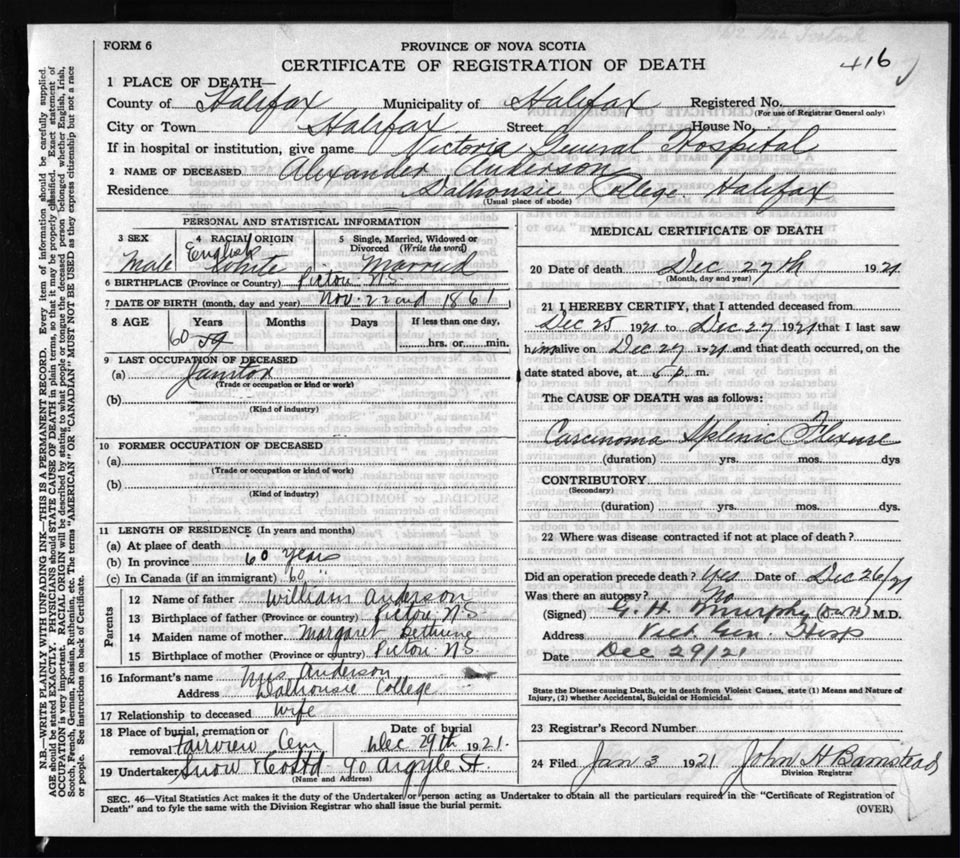 FORM 6
PROVINCE OF NOVA SCOTIA
CERTIFICATE OF REGISTRATION OF DEATH
416
1 PLACE OF DEATH—
County of Halifax Municipality of Halifax Registered No.
(For use of Registrar General only)
City or Town Halifax Street House No.
If in hospital or institution, give name Victoria General Hospital
2 NAME OF DECEASED Alexander Anderson
Residence Dalhousie College Halifax
(Usual place of abode)
PERSONAL AND STATISTICAL INFORMATION
3 SEX 4 RACIAL ORIGIN 5 Single, Married, Widowed or Divorced (Write the word)
Male English White Married
6 BIRTHPLACE (Province or Country) Pictou N.S.
7 DATE OF BIRTH (month, day and year) Nov. 22nd 1861
8 AGE Years Months Days If less than one day,
60 59 hrs. or min.
9 LAST OCCUPATION OF DECEASED
(a) Janitor
(Trade or occupation or kind or work)
(b)
(Kind of industry)
10 FORMER OCCUPATION OF DECEASED
(a)
(Trade or occupation or kind of work)
(b)
(Kind of industry)
11 LENGTH OF RESIDENCE (In years and months)
(a) At place of death
(b) In province 60 years
(c) In Canada (if an immigrant) 60 "
Parents
12 Name of father William Anderson
13 Birthplace of father (Province or country) Pictou N.S.
14 Maiden name of mother Margaret
15 Birthplace of mother (Province or country) Pictou N.S.
16 Informant's name Mrs Anderson
Address Dalhousie College
17 Relationship to deceased Wife
18 Place of burial, cremation or removal Fairview Cem Date of burial Dec 29th 1921.
19 Undertaker Snow & Co Ltd 90 Argyle St.
(Name and Address)
MEDICAL CERTIFICATE OF DEATH
20 Date of death Dec 27th 1921
(Month, day and year)
21 I HEREBY CERTIFY, that I attended deceased from
Dec 25 1921 to Dec 27 1921 that I last saw
him alive on Dec 27 1921 and that death occurred, on the
date stated above, at 5 p. m.
The CAUSE OF DEATH was as follows:
Carcinoma Splenic Flexure
(duration) yrs. mos. dys
CONTRIBUTORY
(Secondary)
(duration) yrs. mos. dys.
22 Where was disease contracted if not at place of death?
Did an operation precede death? Yes Date of Dec 26/21
Was there an autopsy? No
(Signed) G. H. Murphy M.D.
Address Vict. Gen. Hosp
Date Dec 29/21
State the Disease causing Death, or in death from Violent Causes, state (1) Means and Nature of Injury, (2) whether Accidental, Suicidal or Homicidal.
23 Registrar's Record Number
24 Filed Jan 3 1921 John H Barnstead
Division Registrar
SEC. 46—Vital Statistics Act makes it the duty of the Undertaker or person acting as Undertaker to obtain all the particulars required in the "Certificate of Registration of
Death" and to fyle the same with the Division Registrar who shall issue the burial permit. (OVER)
N.B.—WRITE PLAINLY WITH UNFADING INK—THIS IS A PERMANENT RECORD. Every item of information should be carefully supplied.
AGE should be stated EXACTLY. PHYSICIANS should STATE CAUSE OF DEATH in plain terms, so that it may be properly classified. Exact statement of
OCCUPATION is very important. RACIAL ORIGIN will be described by stating to what people or tongue the deceased person belonged whether English, Irish,
Scotch, French, German, Russian, Ruthenian, etc. The terms "AMERICAN" OR "CANADIAN" MUST NOT BE USED as they express citizenship but not a race
or people. See instructions on back of Certificate.